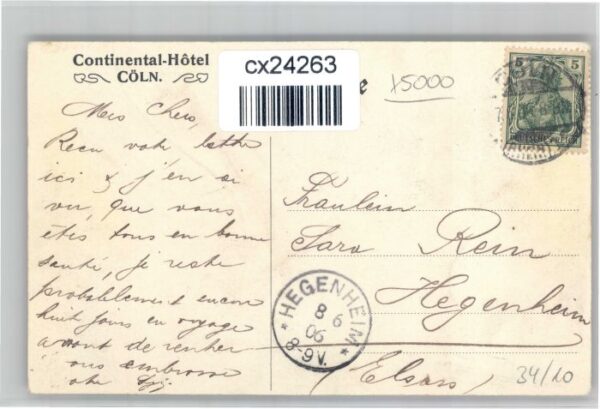 Continental-Hôtel
CÖLN.
cx24263
15000
5 5
Mes chers,
Reçu votre lettre
ici & j'en ai
vu, que vous
êtes tous en bonne
santé, je reste
probablement encore
huit jours en voyage
avant de rentrer
vous embrasse
Fräulein
Sara Rein
Hegenheim
(Elsass)
HEGENHEIM
8 6
06
8-9V.
34/10